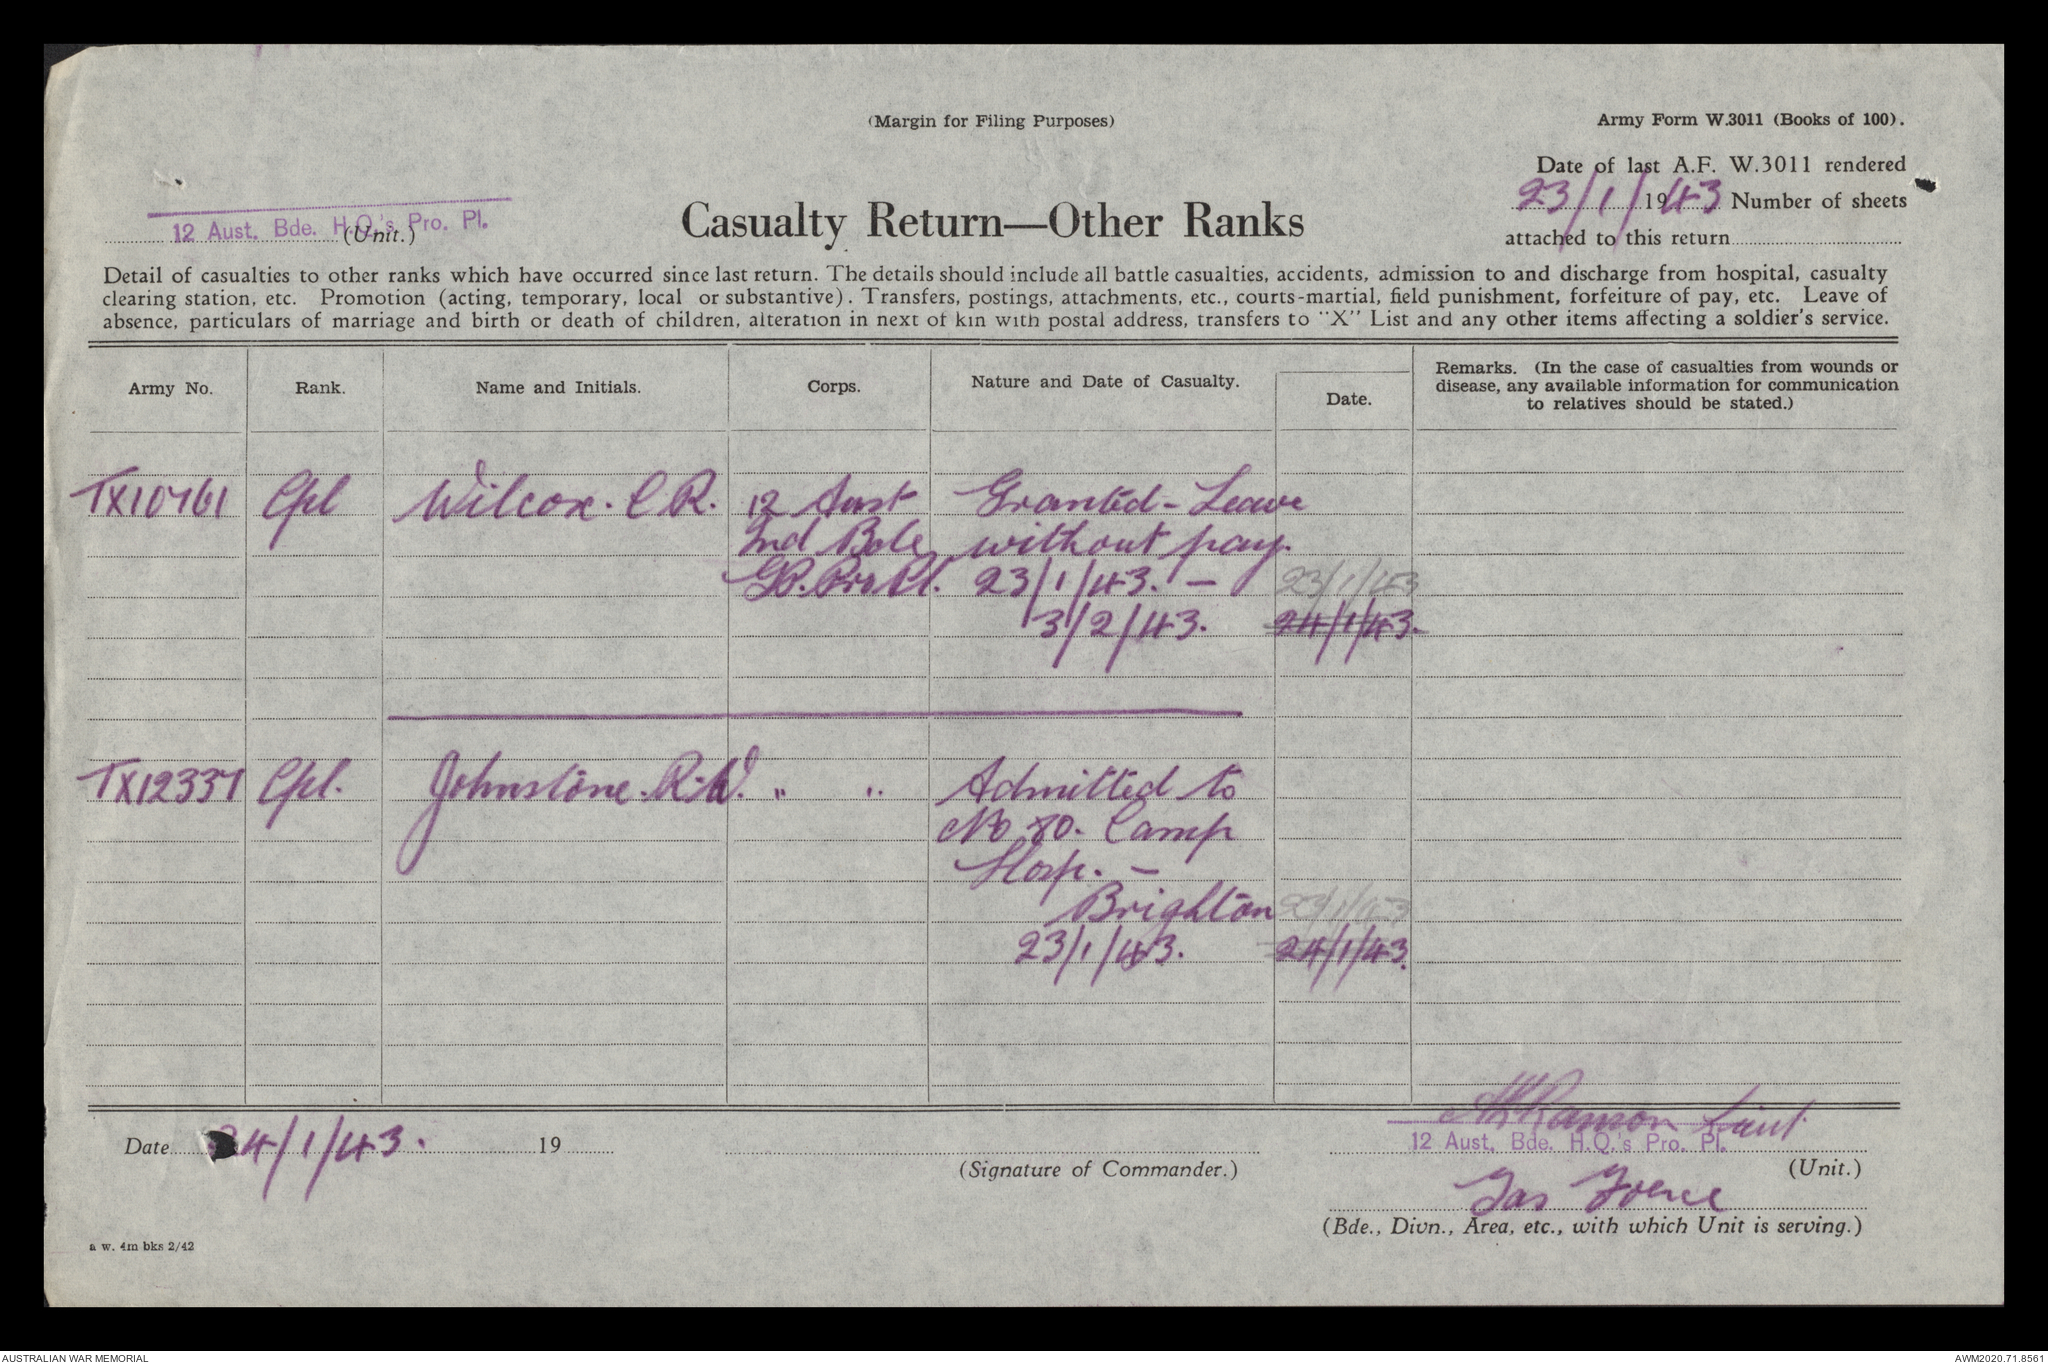 (Margin for Filing Purposes)
Army Form W.3011 (Books of 100).
Date of last A.F. W.3011 rendered
23/1/1943 Number of sheets
attached to this return
12 Aust. Bde. H.Q.'s Pro. Pl.
(Unit.)
Casualty Return—Other Ranks
Detail of casualties to other ranks which have occurred since last return. The details should include all battle casualties, accidents, admission to and discharge from hospital, casualty
clearing station, etc. Promotion (acting, temporary, local or substantive). Transfers, postings, attachments, etc., courts-martial, field punishment, forfeiture of pay, etc. Leave of
absence, particulars of marriage and birth or death of children, alteration in next of kin with postal address, transfers to "X" List and any other items affecting a soldier's service.
Army No. Rank. Name and Initials. Corps. Nature and Date of Casualty. Date. Remarks. (In the case of casualties from wounds or
disease, any available information for communication
to relatives should be stated.)
TX10761 Cpl Wilcox. C R. 12 Aust Granted - Leave
Ind Bde without pay.
Pro Pl. 23/1/43. – 23/1/43
3/2/43. 24/1/43.
TX12337 Cpl. Johnstone. R.W. " " Admitted to
No 80. Camp
Hosp. –
Brighton 23/1/43
23/1/43. 24/1/43.
Date 24/1/43. 19
(Signature of Commander.)
Lieut
12 Aust. Bde. H.Q.'s Pro. Pl.
(Unit.)
Tas Force
(Bde., Divn., Area, etc., with which Unit is serving.)
a w. 4m bks 2/42
AUSTRALIAN WAR MEMORIAL
AWM2020.71.8561